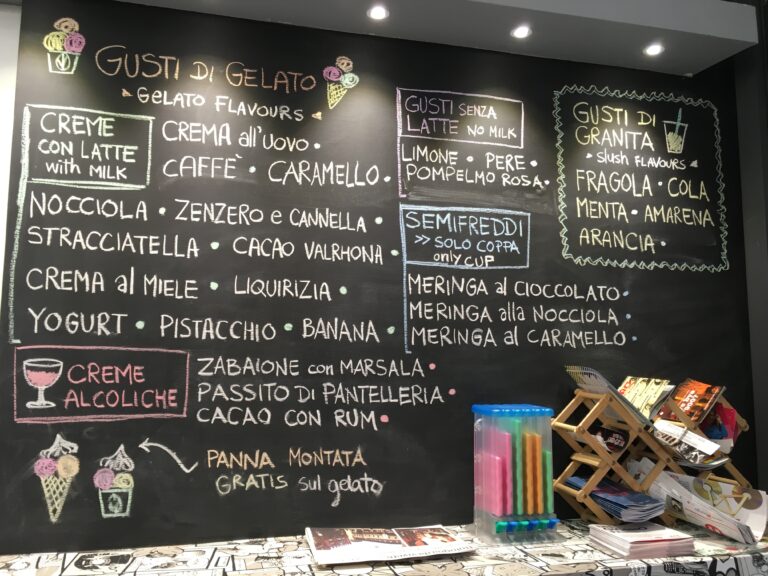 GUSTI DI GELATO
GELATO FLAVOURS
CREME
CON LATTE
with MILK
CREMA all'UOVO •
CAFFÈ • CARAMELLO •
NOCCIOLA • ZENZERO e CANNELLA •
STRACCIATELLA • CACAO VALRHONA •
CREMA al MIELE • LIQUIRIZIA •
YOGURT • PISTACCHIO • BANANA •
CREME
ALCOLICHE
ZABAIONE con MARSALA •
PASSITO DI PANTELLERIA •
CACAO CON RUM •
PANNA MONTATA
GRATIS sul gelato
GUSTI SENZA
LATTE NO MILK
LIMONE • PERE •
POMPELMO ROSA •
SEMIFREDDI
>> SOLO COPPA
only CUP
MERINGA al CIOCCOLATO •
MERINGA alla NOCCIOLA •
MERINGA al CARAMELLO •
GUSTI DI
GRANITA
slush FLAVOURS
FRAGOLA • COLA
MENTA • AMARENA
ARANCIA •